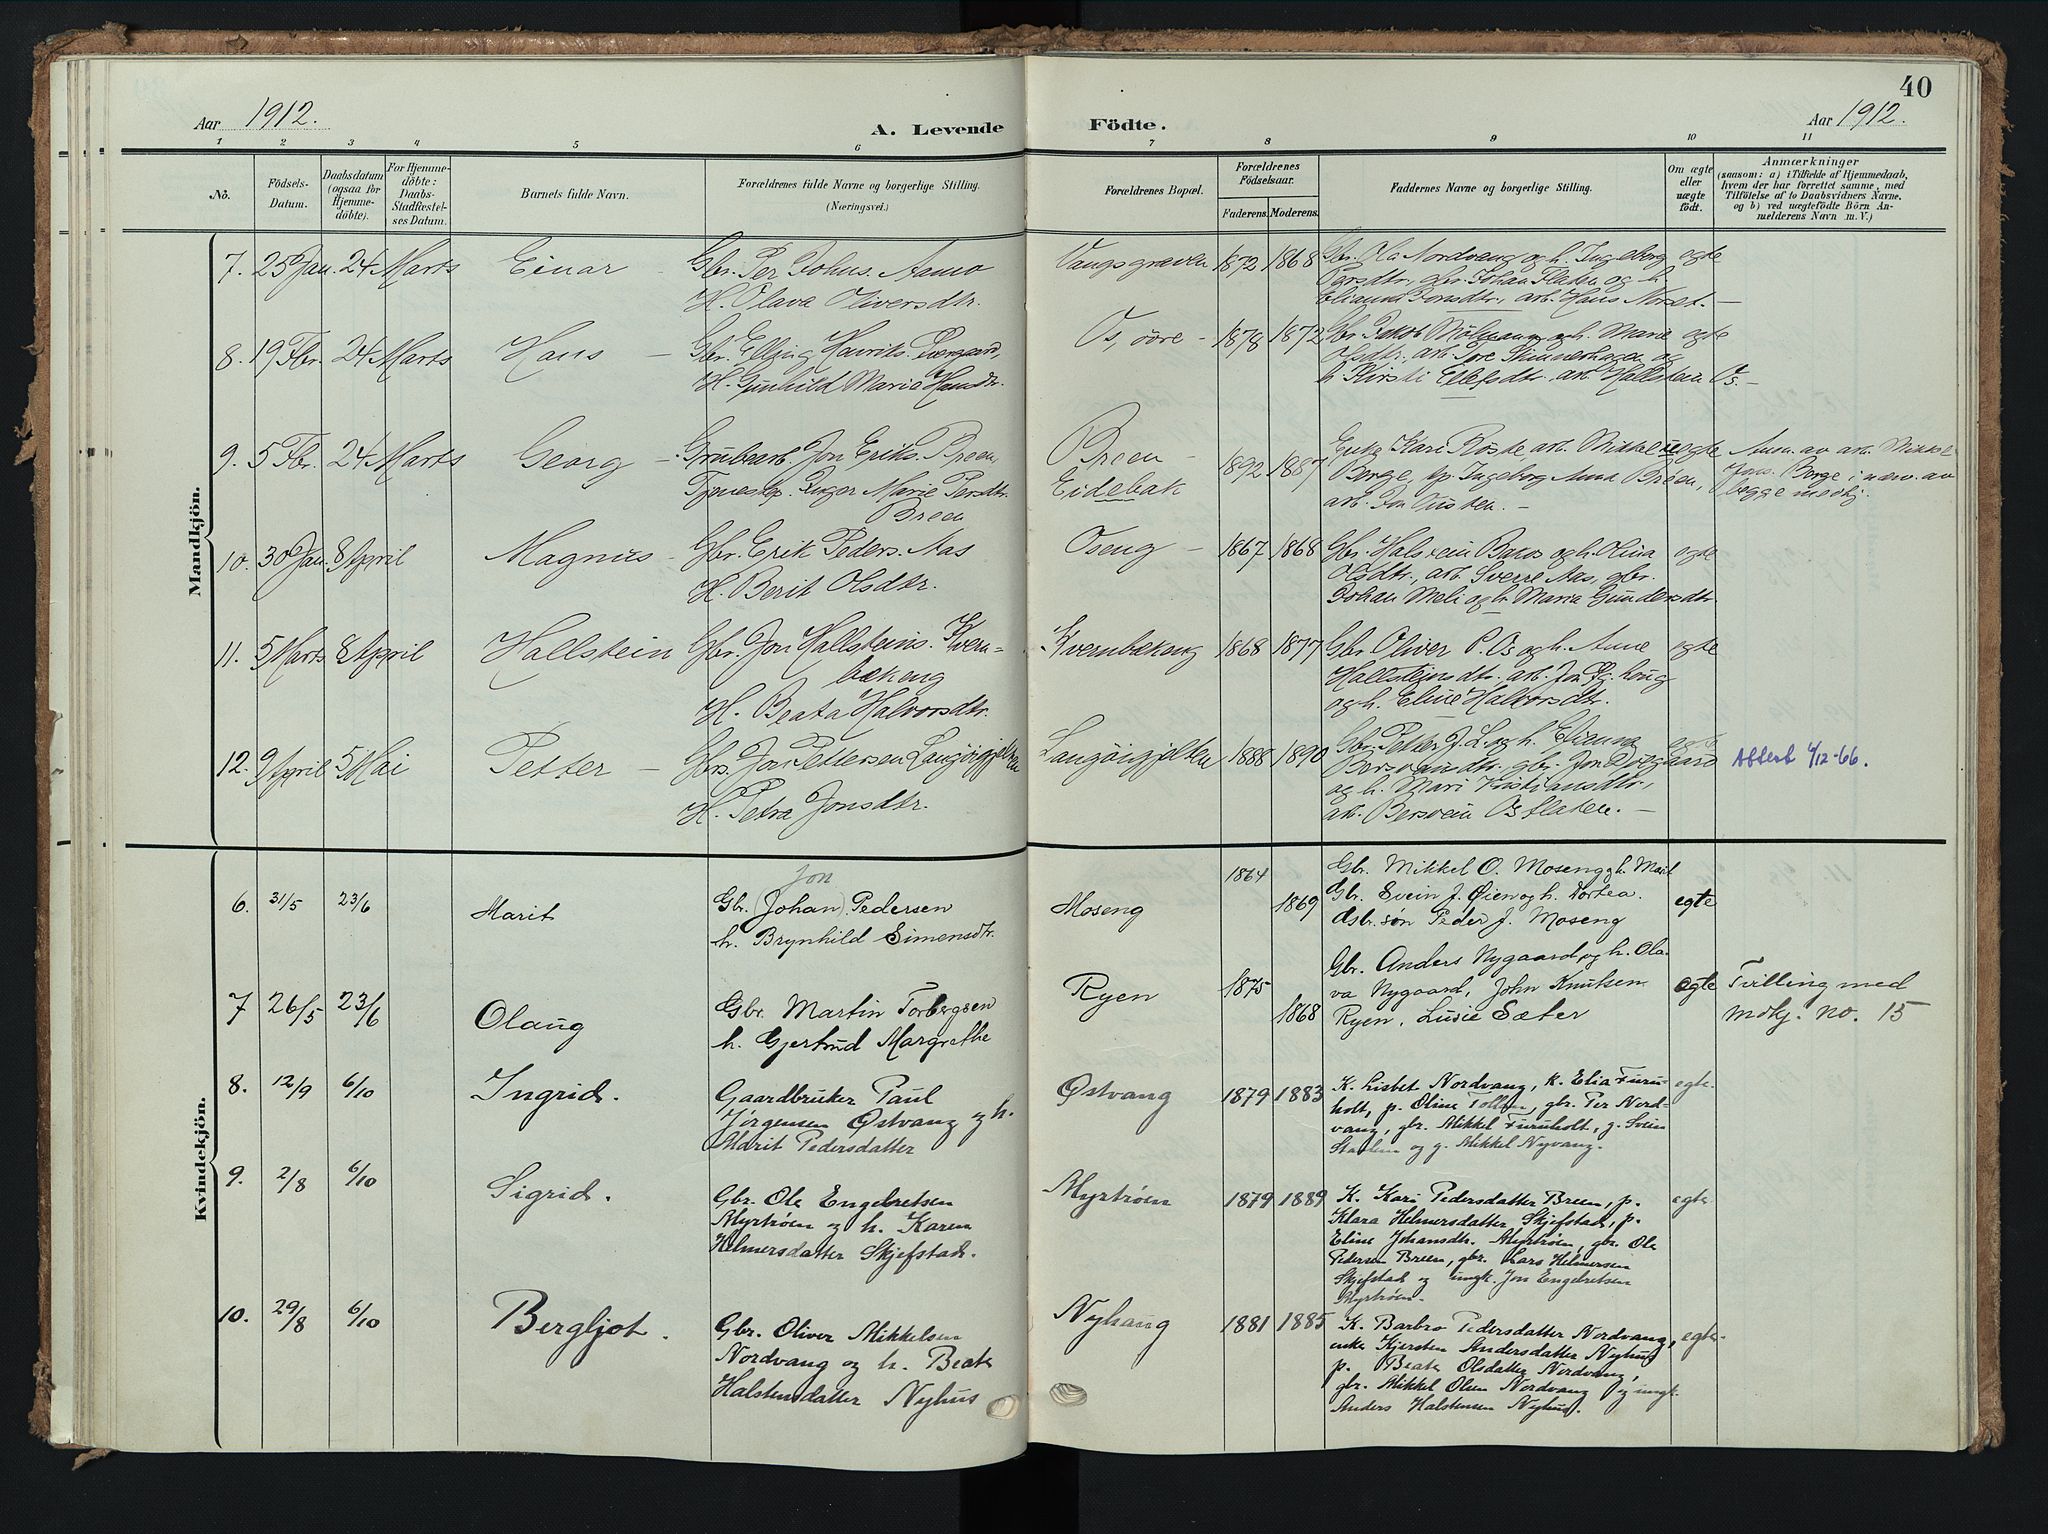 40
Aar 1912.
A. Levende Födte.
Aar 1912.
1 2 3 4 5 6 7 8 9 10 11
No.
Födsels-
Datum.
Daabsdatum
(ogsaa for
Hjemme-
döbte).
For Hjemme-
döbte:
Daabs-
Stadfæstel-
ses Datum.
Barnets fulde Navn.
Forældrenes fulde Navne og borgerlige Stilling.
(Næringsvei.)
Forældrenes Bopæl.
Forældrenes
Födselsaar.
Faderens. Moderens.
Faddernes Navne og borgerlige Stilling.
Om ægte
eller
uægte
födt.
Anmærkninger
(saasom: a) i Tilfælde af Hjemmedaab,
hvem der har forrettet samme, med
Tilföielse af to Daabsvidners Navne.
og b) ved uægtefödte Börn An-
melderens Navn m. V.)
Mandkjön.
7. 25 Jan. 24 Marts Einar – Gbr. Per Johns. Aamo
H. Olava Oliversdtr.
Vangsgraven 1872 1868 Gbr. Ola Nordvang og h. Ingeborg egte
Persdtr., gbr. Johan Fladen og h.
Jonsdtr., arb. Hans Noret. –
8. 19 Fbr. 24 Marts Hans – Gbr. Elling Henriks.
H. Gunhild Marie Hansdtr.
Os, øvre – 1878 1872 Gbr. Jakob og h. Marie egte
Olsdtr., arb. Tore og
h. Kirsti Ellefsdtr. arb. Hallstein Os. –
9. 5 Fbr. 24 Marts Georg – Grubearb. Jon Eriks. Breen
Tjenestep. Inger Marie Persdtr.
Breen
Breen –
Eidebak
1892 1887 Enke Kari Røste arb. Mikkel uegte
Borge, tp. Ingeborg Anna Breen,
arb. Jon –
Anm. av arb. Mikkel
Jons. Borge i nærv. av
begge medhj.
10. 30 Jan. 8 April Magnus – Gbr. Erik Peders. Aas
H. Berit Olsdtr.
Oseng – 1867 1868 Gbr. Halvein og h. Olina egte
Olsdtr., arb. Sverre Aas, gbr.
Johan Meli og h. Maria Gundersdtr.
11. 5 Marts 8 April Hallstein Gbr. Jon Hallsteins. Kvern-
bækeng
H. Beata Halvorsdtr.
Kvernbekeng 1868 1877 Gbr. Oliver P. Os og h. Anne egte
Hallsteinsdtr., arb. Jon
og h. Eline Halvorsdtr.
12. 9 April 5 Mai Petter – Gbr. Jon Pettersen Langøigjelten
H. Petra Jonsdtr.
Langøigjelten 1888 1890 Gbr. Petter J. L. og h.
Bersveindtr. gbr. Jon
og h. Mari Kristiansdtr.,
arb. Bersvein Osflaten. –
egte
Afterb 4/12-66.
Kvindekjön.
6. 31/5 23/6 Marit
Jon
Gbr. (Johan) Pedersen
h. Brynhild Simensdtr.
Moseng 1864 1869
Gbr. Mikkel O. Moseng og h. Marit
Gbr. Svein J. Øien og h. Dortea.
Gsbr. søn Peder J. Moseng
egte
7 26/5 23/6 Olaug
Gbr. Martin Torbergsen
h. Gjertrud Margrethe
Ryen 1875 1868
Gbr. Anders Nygaard og h. Ola-
va Nygaard, John Knutsen
Ryen, Lusie Sæter
egte
Tvilling med
mdkj. no. 15
8. 12/9 6/10 Ingrid.
Gaardbruker Paul
Jørgensen Østvang og h.
Marit Pedersdatter
Østvang 1879 1883
K. Lisbet Nordvang, k. Elia Furu-
holt, p. Oline Tollan, gbr. Per Nord-
vang, gbr. Mikkel Furuholt, g. Svein
og g. Mikkel Nyvang.
egte.
9. 2/8 6/10 Sigrid.
Gbr. Ole Engebretsen
Myrtrøen og h. Karen
Helmersdatter Skjefstad.
Myrtrøen 1879 1889
K. Kari Pedersdatter Breen, p.
Klara Helmersdatter Skjefstad, p.
Eline Johansdtr. Myrtrøen, gbr. Ole
Pedersen Breen, gbr. Lars Helmersen
Skjefstad og ungk. Jon Engebretsen
Myrtrøen.
egte
10. 29/8 6/10 Bergljot.
Gbr. Oliver Mikkelsen
Nordvang og h. Beate
Halstensdatter Nyhus
Nyhaug 1881 1885
K. Barbro Pedersdatter Nordvang,
enke Kjersten Andersdatter Nyhus
p. Beate Olsdatter Nordvang,
gbr. Mikkel Olsen Nordvang og ungk.
Anders Halstensen Nyhus.
egte.